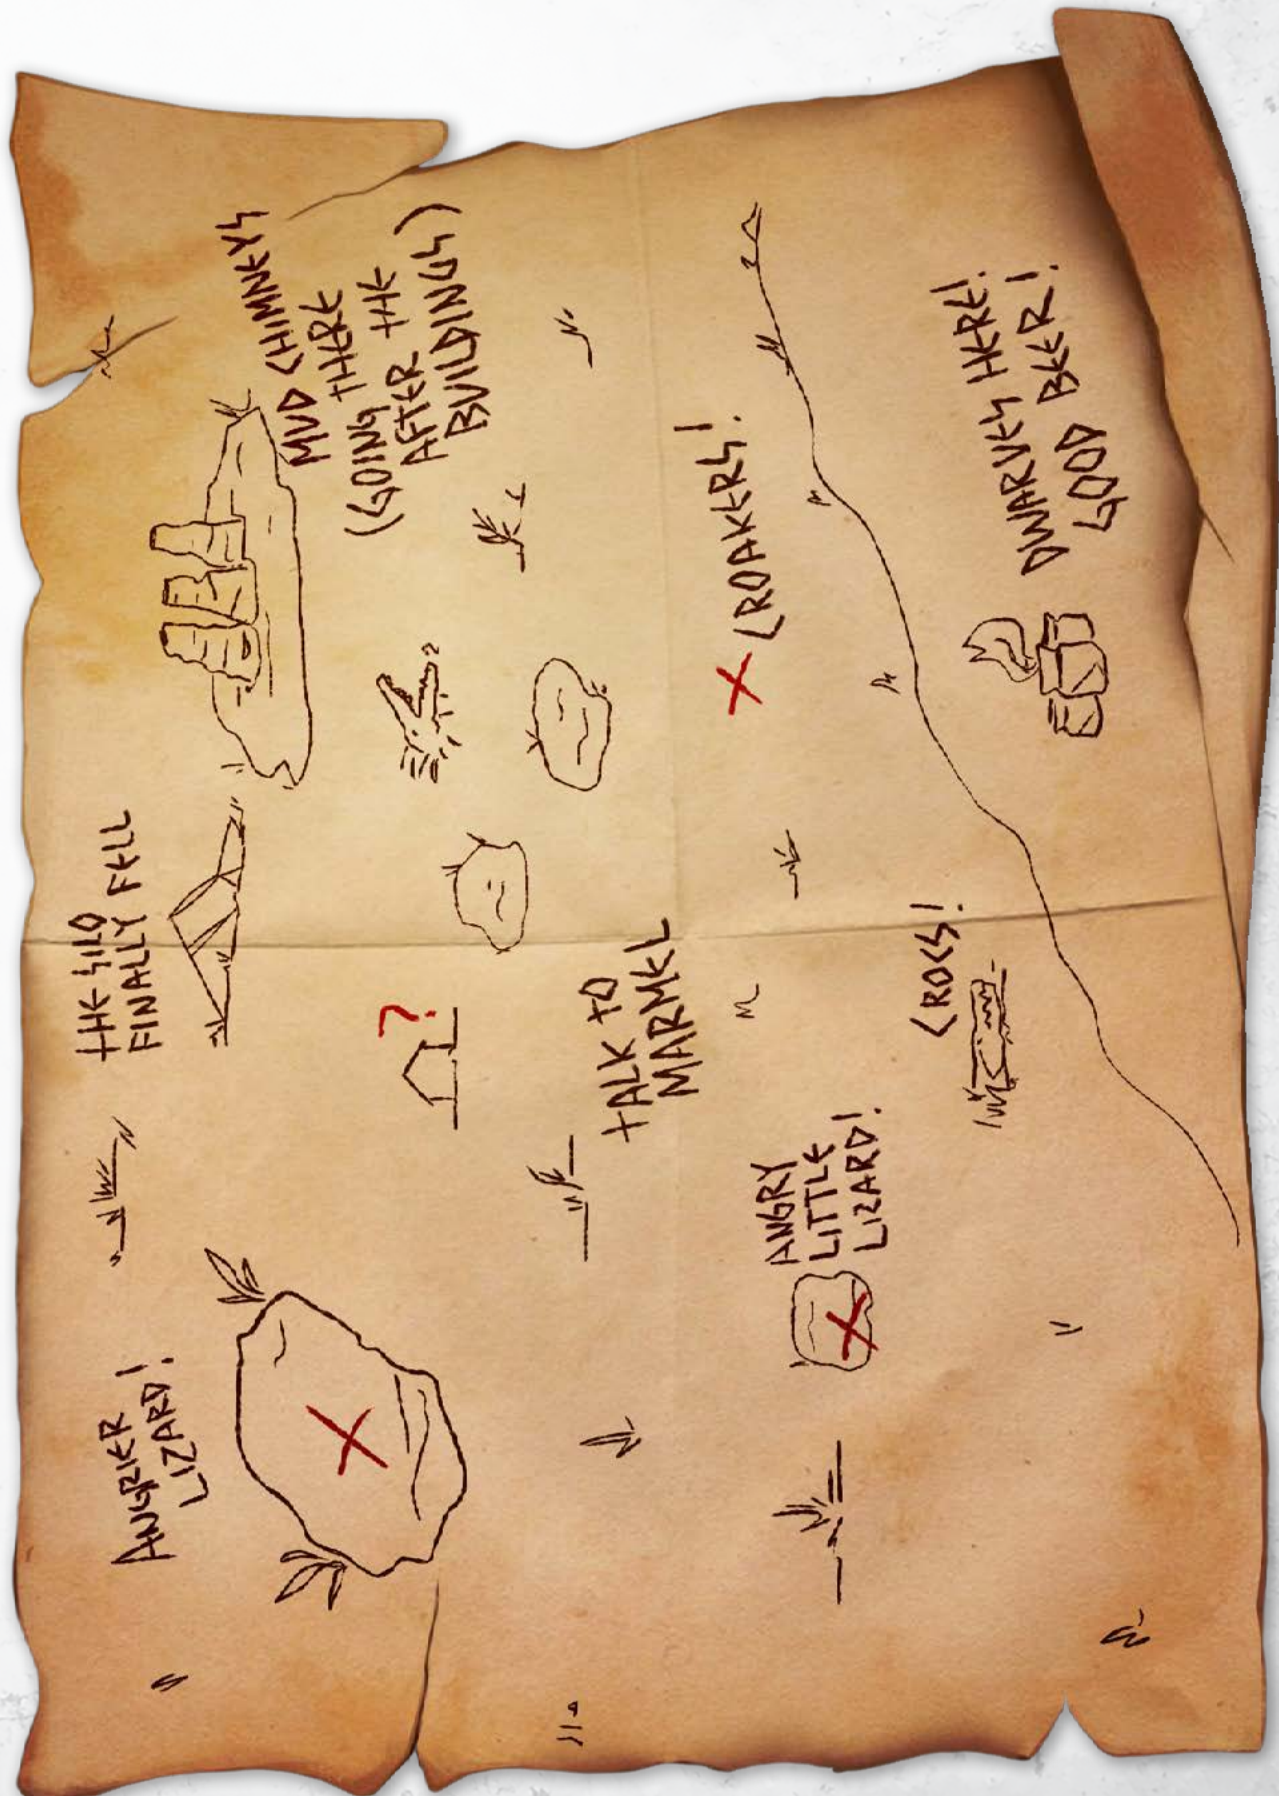 ANGRIER
LIZARD!
THE SILO
FINALLY FELL
MUD CHIMNEYS
(GOING THERE
AFTER THE
BUILDINGS)
?
TALK TO
MARMEL
CROAKERS!
ANGRY
LITTLE
LIZARD!
CROCS!
DWARVES HERE!
GOOD BEER!